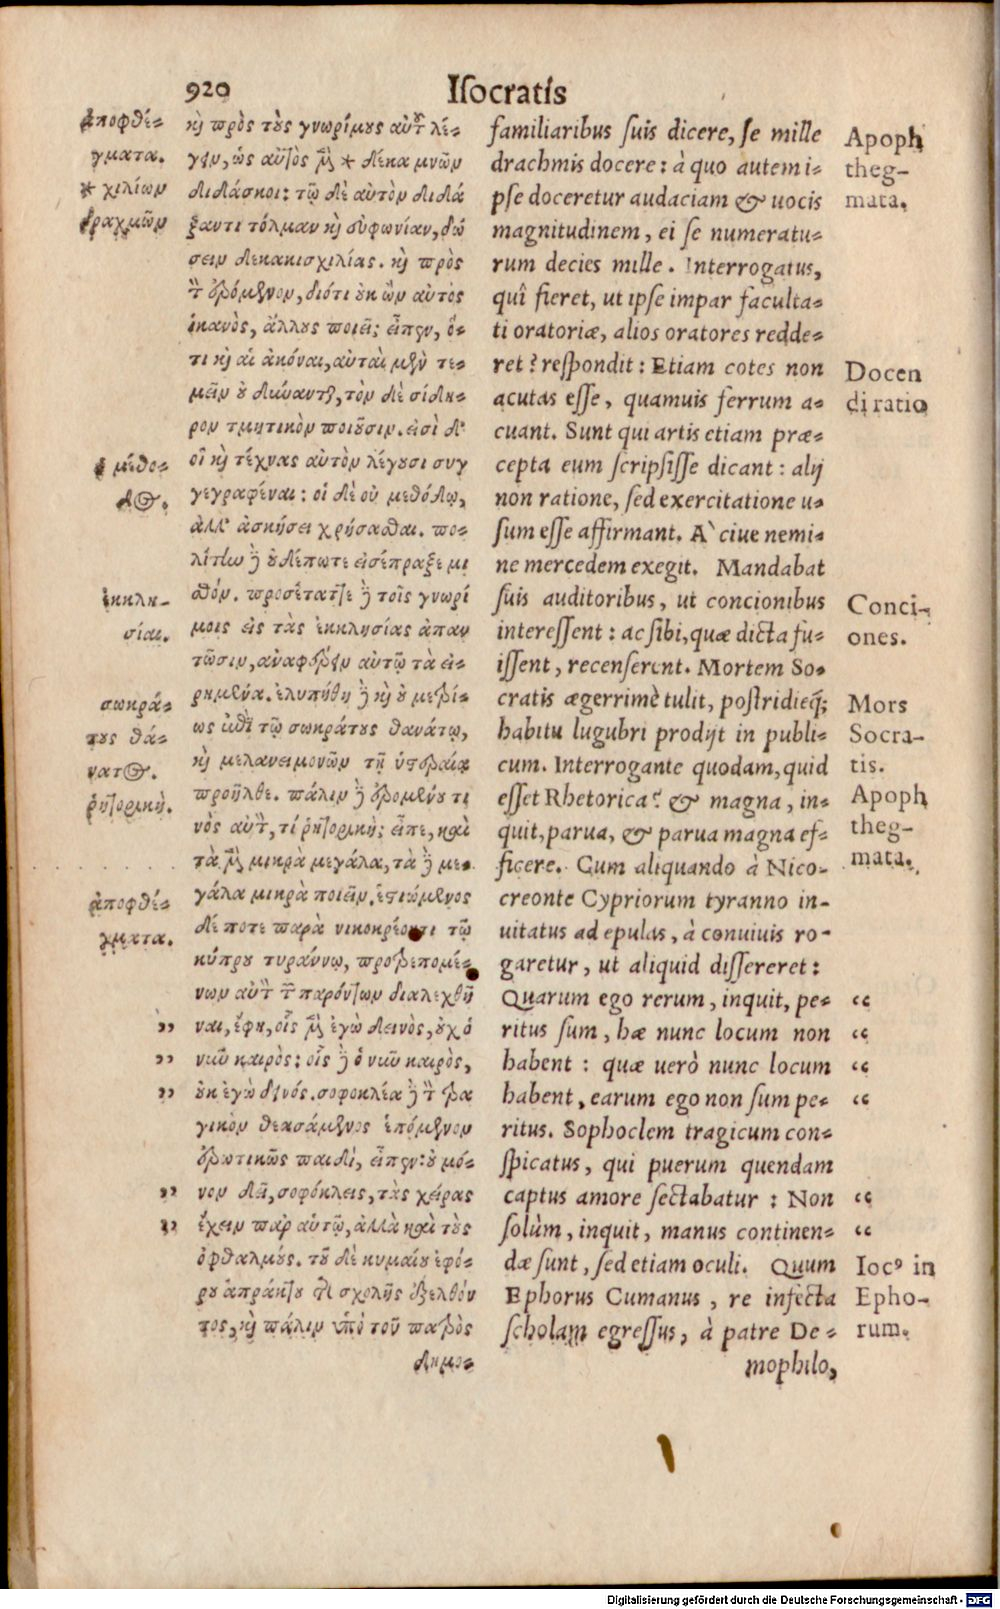 920
Iſocratis
ἀποφθέ-
γματα.
* χιλίων
δραχμῶν
ἡ μέθο-
δος.
ἐκκλη-
σίαι.
σωκρά-
τους θά-
νατος.
ῥητορική.
ἀποφθέ-
γματα.
καὶ πρὸς τοὺς γνωρίμους αὐτοῦ λέ-
γειν, ὡς αὐτὸς μὲν * δέκα μνῶν
διδάσκοι: τῷ δὲ αὐτὸν διδά
ξαντι τόλμαν καὶ εὐφωνίαν, δώ
σειν δεκακισχιλίας. καὶ πρὸς
τὸν ἐρόμενον, διότι οὐκ ὢν αὐτὸς
ἱκανὸς, ἄλλους ποιεῖ; εἶπεν, ὅ-
τι καὶ αἱ ἀκόναι, αὐταὶ μὲν τε-
μεῖν οὐ δύνανται, τὸν δὲ σίδη-
ρον τμητικὸν ποιοῦσιν. εἰσὶ δ'
οἳ καὶ τέχνας αὐτὸν λέγουσι συγ
γεγραφέναι: οἱ δὲ οὐ μεθόδῳ,
ἀλλ' ἀσκήσει χρήσασθαι. πο-
λίτην δὲ οὐδέποτε εἰσέπραξε μι
σθόν. προσέταττε δὲ τοῖς γνωρί
μοις εἰς τὰς ἐκκλησίας ἀπαν
τῶσιν, ἀναφέρειν αὐτῷ τὰ εἰ-
ρημένα. ἐλυπήθη δὲ καὶ οὐ μετρί-
ως ἐπὶ τῷ σωκράτους θανάτῳ,
καὶ μελανειμονῶν τῇ ὑστεραίᾳ
προῆλθε. πάλιν δὲ ἐρομένου τι
νὸς αὐτὸν, τί ῥητορική; εἶπε, καὶ
τὰ μὲν μικρὰ μεγάλα, τὰ δὲ με-
γάλα μικρὰ ποιεῖν. ἑστιώμενος
δέ ποτε παρὰ νικοκρέοντι τῷ
κύπρου τυράννῳ, προτρεπομέ-
νων αὐτὸν τῶν παρόντων διαλεχθῆ
ναι, ἔφη, οἷς μὲν ἐγὼ δεινὸς, οὐχ ὁ
νῦν καιρὸς: οἷς δὲ ὁ νῦν καιρὸς,
οὐκ ἐγὼ δεινός. σοφοκλέα δὲ τὸν τρα
γικὸν θεασάμενος ἑπόμενον
ἐρωτικῶς παιδὶ, εἶπεν: οὐ μό-
νον δεῖ, σοφόκλεις, τὰς χεῖρας
ἔχειν παρ' αὑτῷ, ἀλλὰ καὶ τοὺς
ὀφθαλμούς. τοῦ δὲ κυμαίου ἐφό-
ρου ἀπράκτου τῆς σχολῆς ἐξελθόν
τος, καὶ πάλιν ὑπὸ τοῦ πατρὸς
δημο-
familiaribus ſuis dicere, ſe mille
drachmis docere: à quo autem i-
pſe doceretur audaciam & uocis
magnitudinem, ei ſe numeratu-
rum decies mille. Interrogatus,
quî fieret, ut ipſe impar faculta-
ti oratoriæ, alios oratores redde-
ret? reſpondit: Etiam cotes non
acutas eſſe, quamuis ferrum a-
cuant. Sunt qui artis etiam præ-
cepta eum ſcripſiſſe dicant: alij
non ratione, ſed exercitatione u-
ſum eſſe affirmant. A` ciue nemi-
ne mercedem exegit. Mandabat
ſuis auditoribus, ut concionibus
intereſſent: ac ſibi, quæ dicta fu-
iſſent, recenſerent. Mortem So-
cratis ægerrimè tulit, poſtridieq́;
habitu lugubri prodijt in publi-
cum. Interrogante quodam, quid
eſſet Rhetorica? & magna, in-
quit, parua, & parua magna ef-
ficere. Cum aliquando à Nico-
creonte Cypriorum tyranno in-
uitatus ad epulas, à conuiuis ro-
garetur, ut aliquid diſſereret:
Quarum ego rerum, inquit, pe-
ritus ſum, hæ nunc locum non
habent: quæ uerò nunc locum
habent, earum ego non ſum pe-
ritus. Sophoclem tragicum con-
ſpicatus, qui puerum quendam
captus amore ſectabatur: Non
ſolùm, inquit, manus continen-
dæ ſunt, ſed etiam oculi. Quum
Ephorus Cumanus, re infecta
ſcholam egreſſus, à patre De-
mophilo,
Apoph
theg-
mata.
Docen
di ratio
Conci-
ones.
Mors
Socra-
tis.
Apoph
theg-
mata.
Iocꝰ in
Epho-
rum.